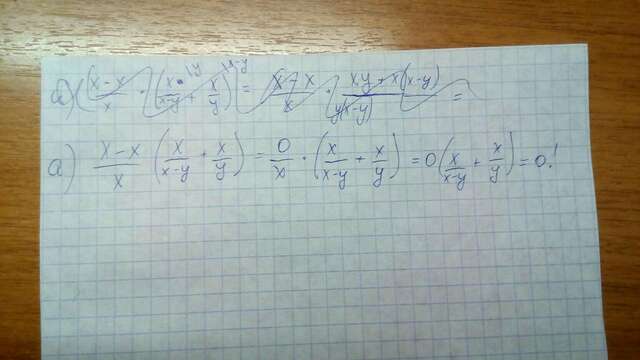 а) (x-x/x · (x\y/x-y + x/y\x-y) = x-x/x · xy+x(x-y)/y(x-y) =
а) x-x/x (x/x-y + x/y) = 0/x · (x/x-y + x/y) = 0(x/x-y + x/y) = 0!